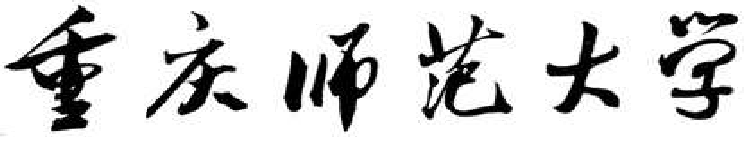 重庆师范大学